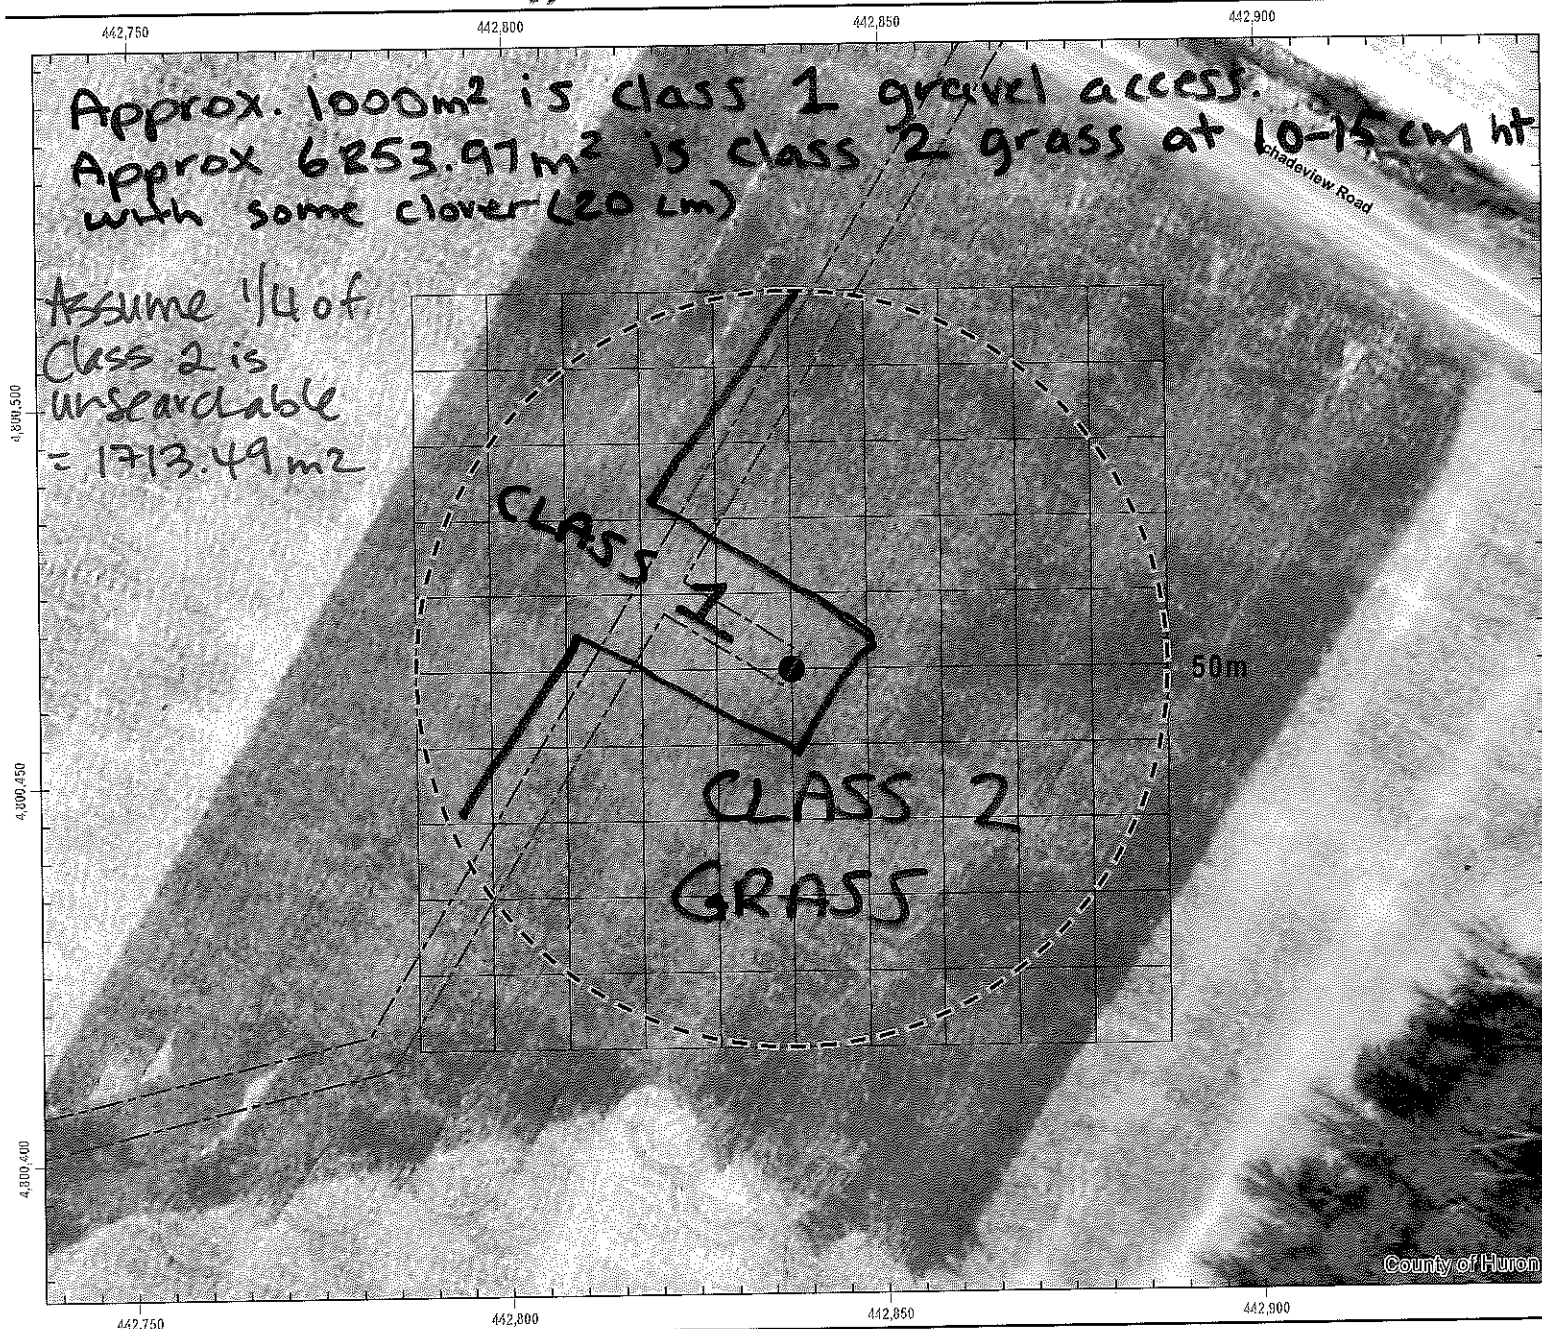 442,750 442,800 442,850 442,900
Approx. 1000m² is class 1 gravel access.
Approx 6853.97m² is class 2 grass at 10-15 cm ht
with some clover (20 cm)
chadeview Road
Assume 1/4 of
Class 2 is
unsearchable
= 1713.49 m2
4,800,500
CLASS
1
50m
4,800,450
CLASS 2
GRASS
4,800,400
County of Huron
442,750 442,800 442,850 442,900